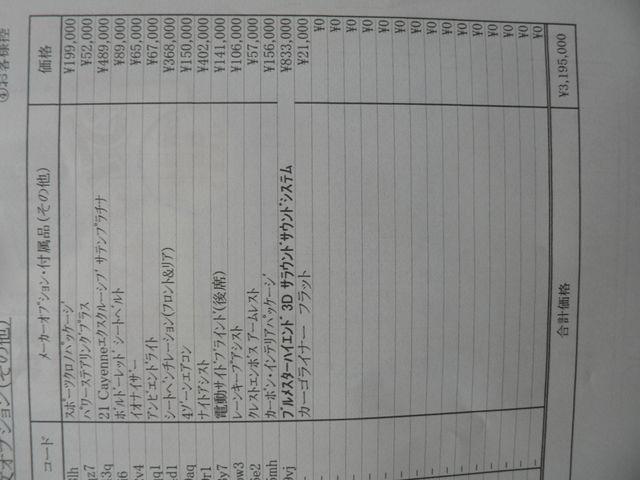 ④お客様控
オプション(その他)
コード メーカーオプション・付属品(その他) 価格
8lh スポーツクロノパッケージ ¥199,000
qz7 パワーステアリングプラス ¥52,000
3q 21 Cayenneエクスクルーシブ サテンプラチナ ¥489,000
n6 ボルドーレッド シートベルト ¥89,000
kv4 イオナイザー ¥65,000
qq1 アンビエントライト ¥67,000
4d1 シートベンチレーション(フロント&リア) ¥368,000
9aq 4ゾーンエアコン ¥150,000
9r1 ナイトアシスト ¥402,000
3y7 電動サイドブラインド(後席) ¥141,000
ow3 レーンキープアシスト ¥106,000
6e2 クレストエンボス アームレスト ¥57,000
5mh カーボン・インテリアパッケージ ¥156,000
9vj ブルメスターハイエンド 3D サラウンドサウンドシステム ¥833,000
- カーゴライナー フラット ¥21,000
- ¥0
- ¥0
- ¥0
- ¥0
- ¥0
- ¥0
- ¥0
- ¥0
- ¥0
- ¥0
- ¥0
- ¥0
- ¥0
- ¥0
合計価格 ¥3,195,000